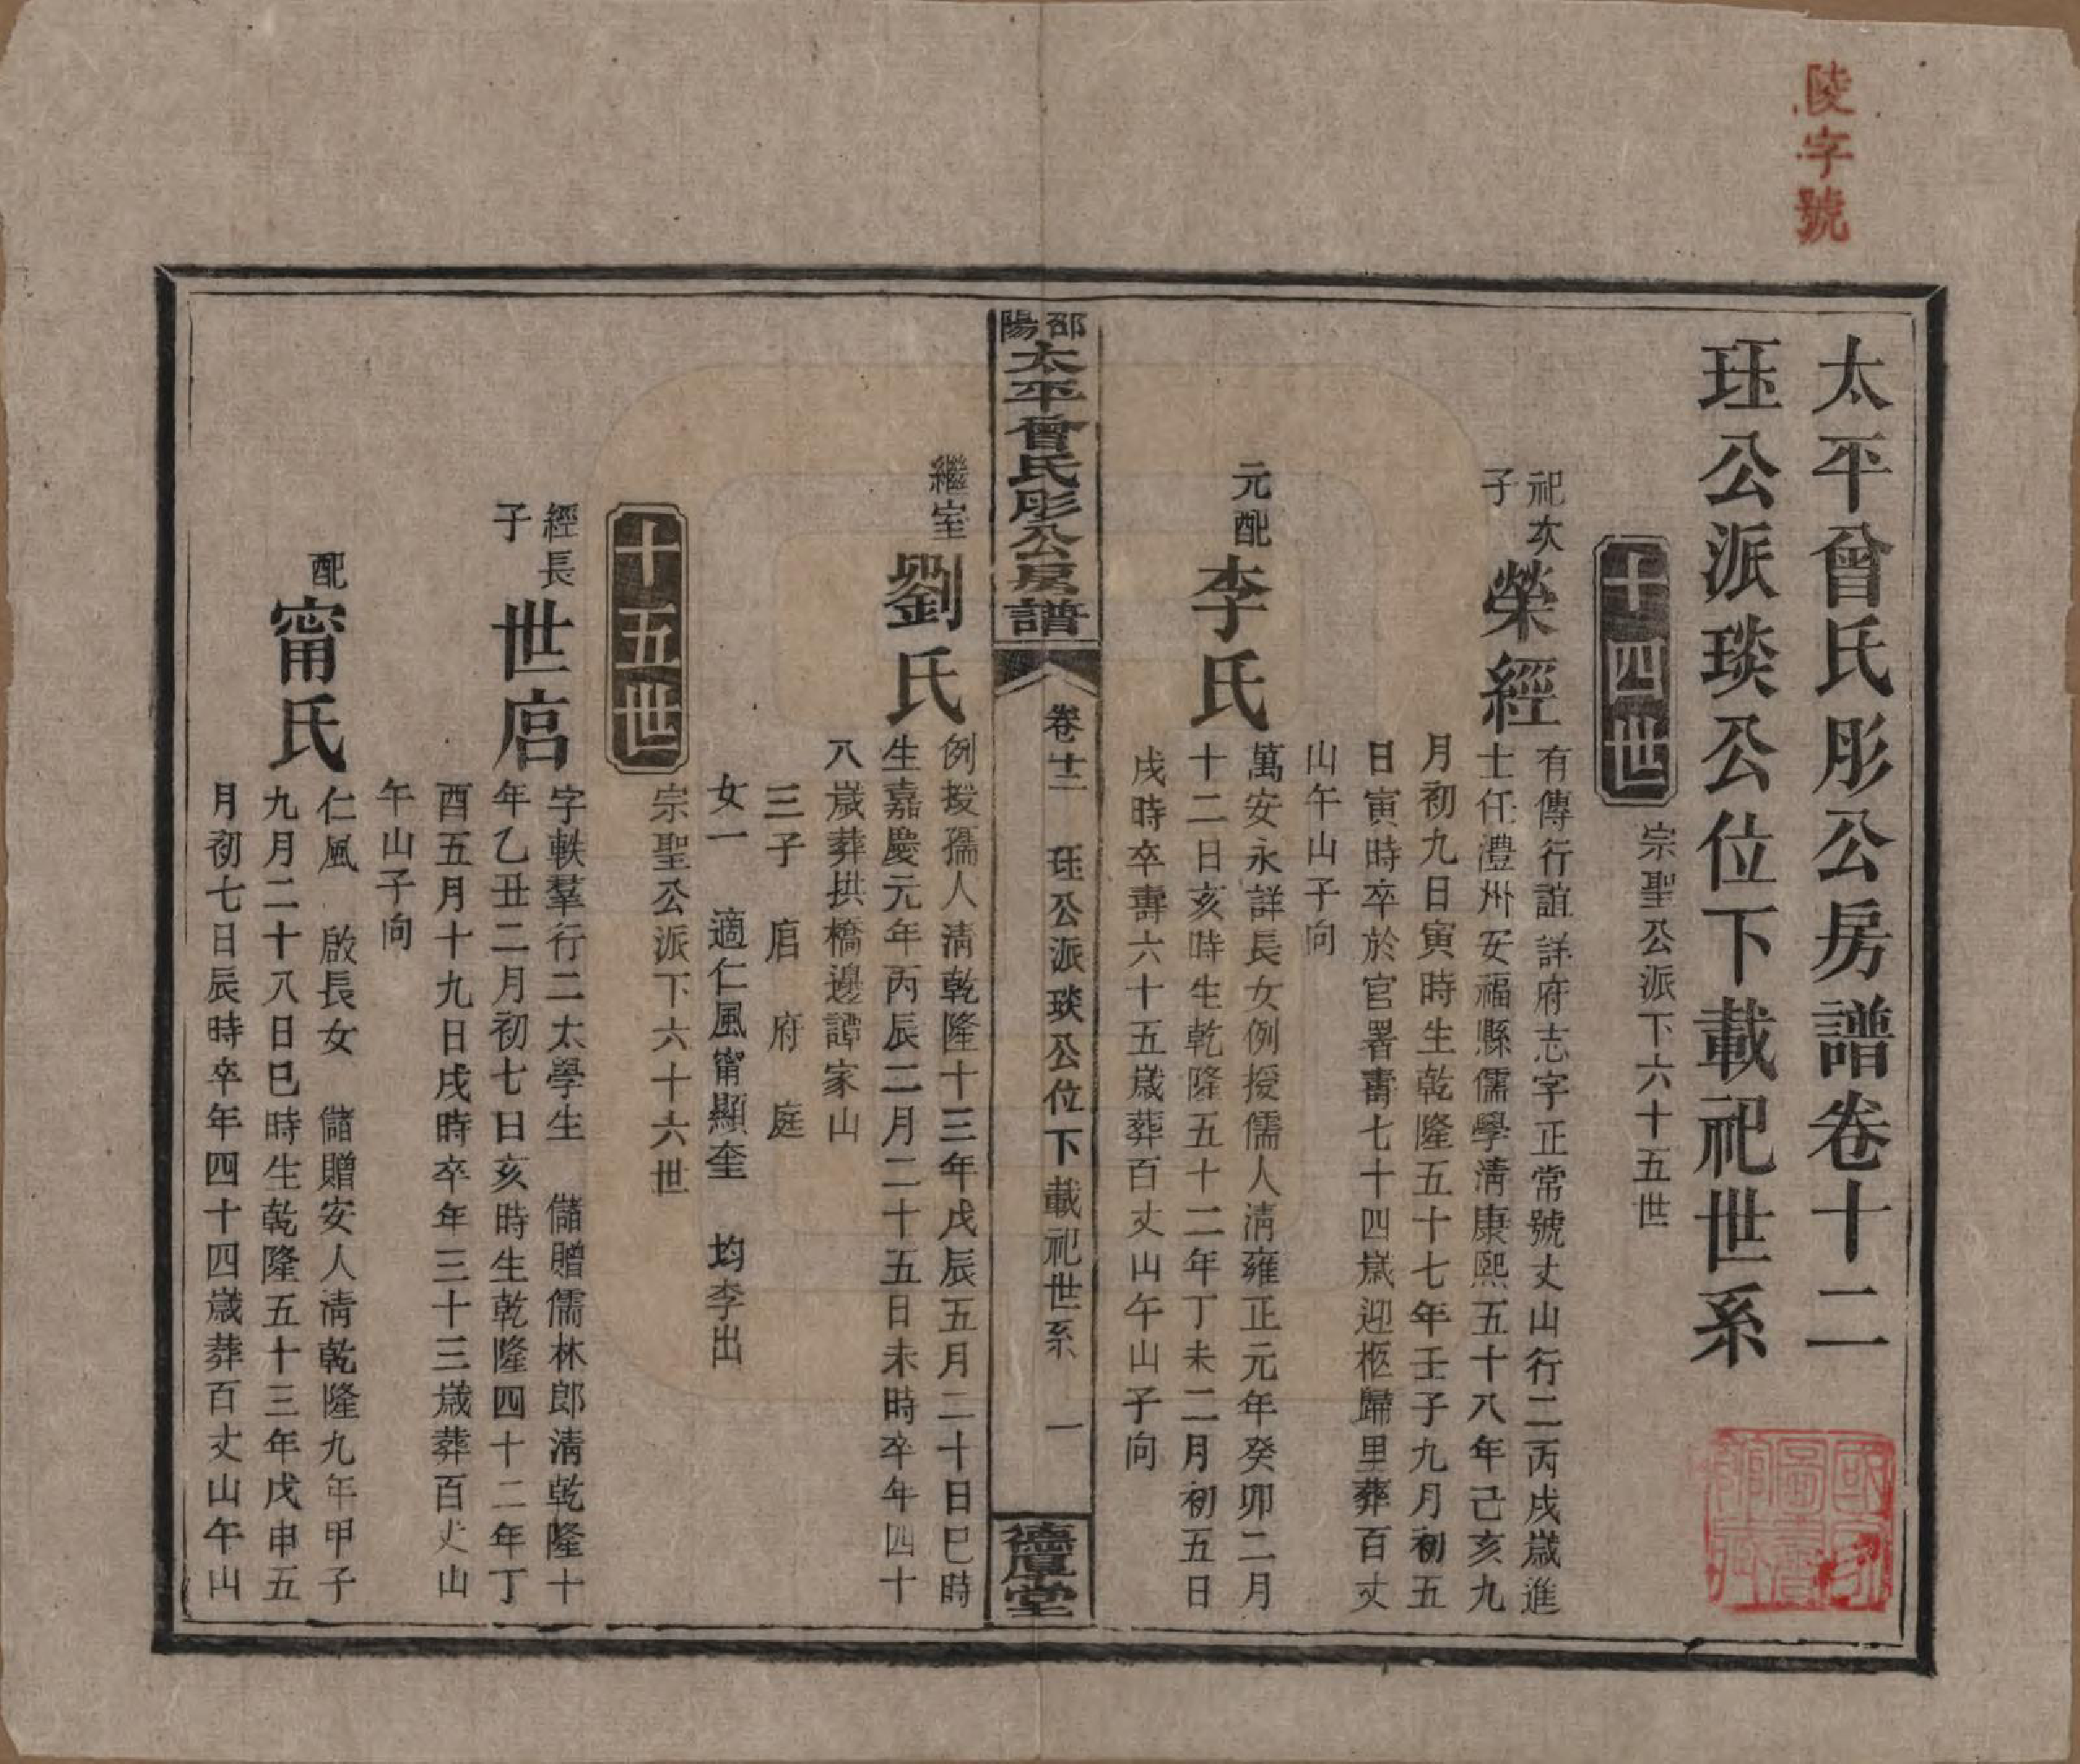 陵字號
太平曾氏彤公房譜卷十二
珏公派琰公位下載祀世系
十四世
宗聖公派下六十五世
祀次子
榮經
有傳行誼詳府志字正常號丈山行二丙戌歲進
士任澧州安福縣儒學清康熙五十八年己亥九
月初九日寅時生乾隆五十七年壬子九月初五
日寅時卒於官署壽七十四歲迎柩歸里葬百丈
山午山子向
元配
李氏
萬安永詳長女例授儒人清雍正元年癸卯二月
十二日亥時生乾隆五十二年丁未二月初五日
戌時卒壽六十五歲葬百丈山午山子向
邵陽太平曾氏彤公房譜
卷十二
珏公派琰公位下載祀世系
一
德厚堂
繼室
劉氏
例授孺人清乾隆十三年戊辰五月二十日巳時
生嘉慶元年丙辰二月二十五日未時卒年四十
八歲葬拱橋邊譚家山
三子 㡽 府 庭
女一 適仁風甯顯奎 均李出
十五世
宗聖公派下六十六世
經長子
世㡽
字軼羣行二太學生 儲贈儒林郎清乾隆十
年乙丑二月初七日亥時生乾隆四十二年丁
酉五月十九日戌時卒年三十三歲葬百丈山
午山子向
配
甯氏
仁風 啟長女 儲贈安人清乾隆九年甲子
九月二十八日巳時生乾隆五十三年戊申五
月初七日辰時卒年四十四歲葬百丈山午山